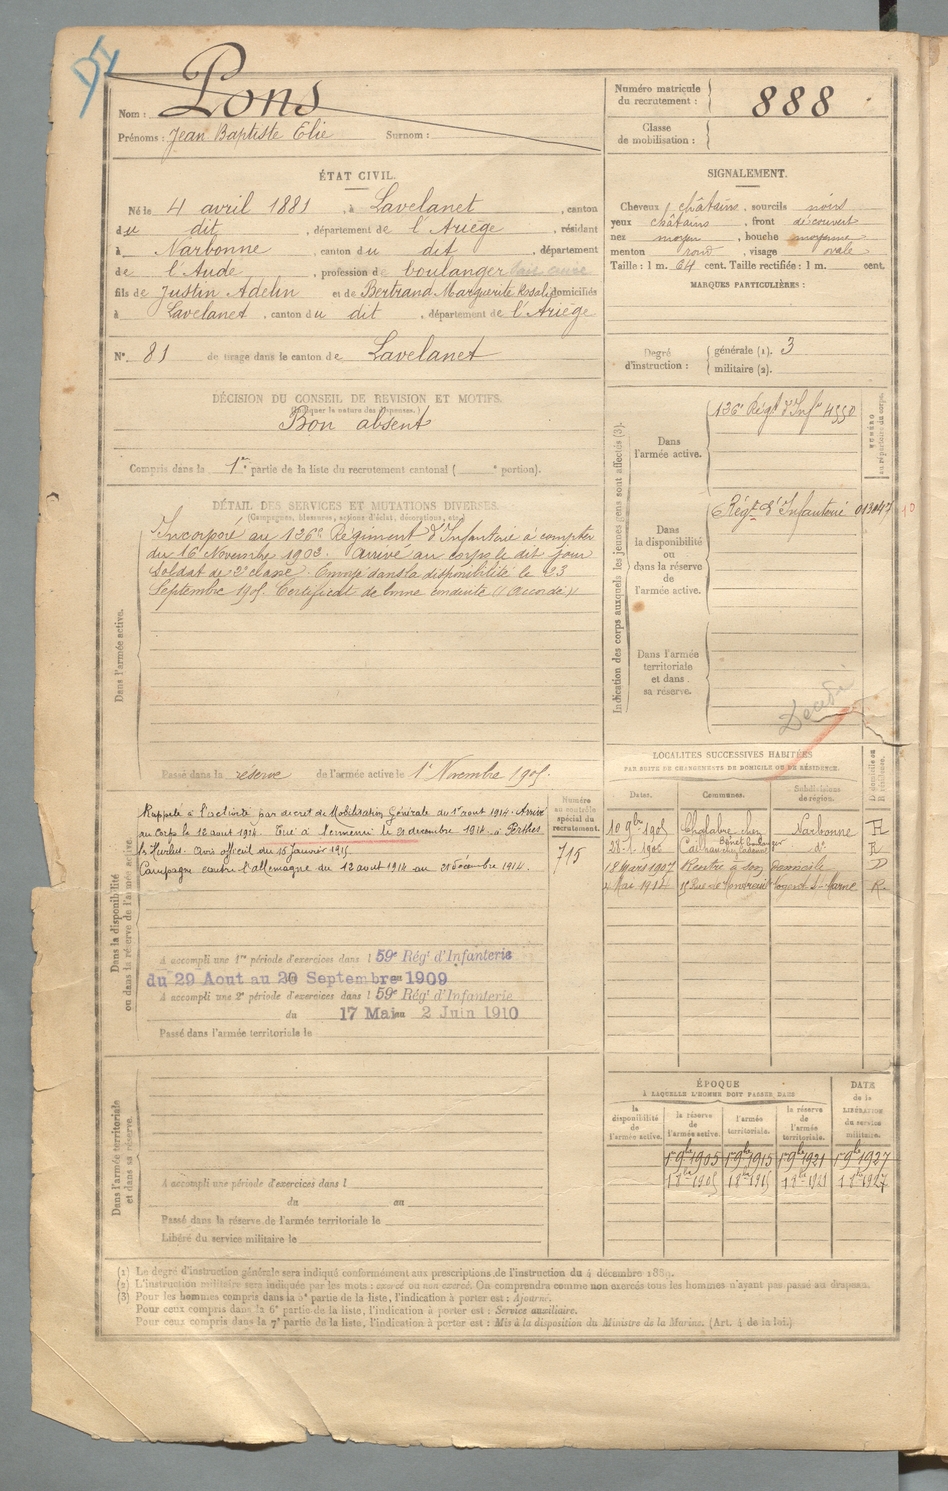 Nom : Pons
Prénoms : Jean Baptiste Elie Surnom :
Numéro matricule du recrutement : 888
Classe de mobilisation :
ÉTAT CIVIL.
Né le 4 avril 1881, à Lavelanet, canton
du dit, département de l'Ariège, résidant
à Narbonne, canton du dit, département
de l'Aude, profession de boulanger
fils de Justin Adelin et de Bertrand Marguerite Rosalie domiciliés
à Lavelanet, canton du dit, département de l'Ariège
N° 81 de tirage dans le canton de Lavelanet
SIGNALEMENT.
Cheveux châtains, sourcils noirs
yeux châtains, front découvert
nez moyen, bouche moyenne
menton rond, visage ovale
Taille : 1 m. 64 cent. Taille rectifiée : 1 m. cent.
MARQUES PARTICULIÈRES :
Degré d'instruction : générale (1). 3
militaire (2).
DÉCISION DU CONSEIL DE REVISION ET MOTIFS.
(Indiquer la nature des dispenses.)
Bon absent
Compris dans la 1re partie de la liste du recrutement cantonal ( e portion).
DÉTAIL DES SERVICES ET MUTATIONS DIVERSES.
(Campagnes, blessures, actions d'éclat, décorations, etc.)
Dans l'armée active.
Incorporé au 136e Régiment d'Infanterie à compter
du 16 Novembre 1902. Arrivé au corps le dit jour
Soldat de 2e classe. Envoyé dans la disponibilité le 23
Septembre 1905. Certificat de bonne conduite "Accordé"
Passé dans la réserve de l'armée active le 1er Novembre 1905.
Indication des corps auxquels les jeunes gens sont affectés (3).
NUMÉRO au répertoire du corps.
Dans l'armée active.
136e Régt d'Infie 4550
Dans la disponibilité ou dans la réserve de l'armée active.
Régt d'Infanterie 013047
Dans l'armée territoriale et dans sa réserve.
Décédé
LOCALITÉS SUCCESSIVES HABITÉES
PAR SUITE DE CHANGEMENTS DE DOMICILE OU DE RÉSIDENCE.
Dates. Communes. Subdivisions de région. D domicile ou R résidence.
10 9bre 1905 Chalabre chez Narbonne R
Bénet boulanger
28-1-1906 do R
18 mars 1907 Rentre à son domicile D
Mai 1914 Nogent s-Marne R
Dans la disponibilité ou dans la réserve de l'armée active.
Numéro au contrôle spécial du recrutement.
715
Rappelé à l'activité par décret de Mobilisation Générale du 1er aout 1914. Arrivé
au Corps le 12 aout 1914. Tué à l'ennemi le 21 décembre 1914 à Perthes
les Hurlus. Avis officiel du 15 Janvier 1915
Campagne contre l'allemagne du 12 août 1914 au 21 décembre 1914.
A accompli une 1re période d'exercices dans l 59e Régt d'Infanterie
du 29 Aout au 20 Septembre 1909
A accompli une 2e période d'exercices dans l 59e Régt d'Infanterie
du 17 Mai au 2 Juin 1910
Passé dans l'armée territoriale le
Dans l'armée territoriale et dans sa réserve.
A accompli une période d'exercices dans l
du au
Passé dans la réserve de l'armée territoriale le
Libéré du service militaire le
ÉPOQUE
À LAQUELLE L'HOMME DOIT PASSER DANS
DATE de la LIBÉRATION du service militaire.
la disponibilité de l'armée active. la réserve de l'armée active. l'armée territoriale. la réserve de l'armée territoriale.
1er 9bre 1905 1er 9bre 1915 1er 9bre 1921 1er 9bre 1927
(1) Le degré d'instruction générale sera indiqué conformément aux prescriptions de l'instruction du 4 décembre 1889.
(2) L'instruction militaire sera indiquée par les mots : exercé ou non exercé. On comprendra comme non exercés tous les hommes n'ayant pas passé au drapeau.
(3) Pour les hommes compris dans la 5e partie de la liste, l'indication à porter est : Ajourné.
Pour ceux compris dans la 6e partie de la liste, l'indication à porter est : Service auxiliaire.
Pour ceux compris dans la 7e partie de la liste, l'indication à porter est : Mis à la disposition du Ministre de la Marine. (Art. 4 de la loi.)